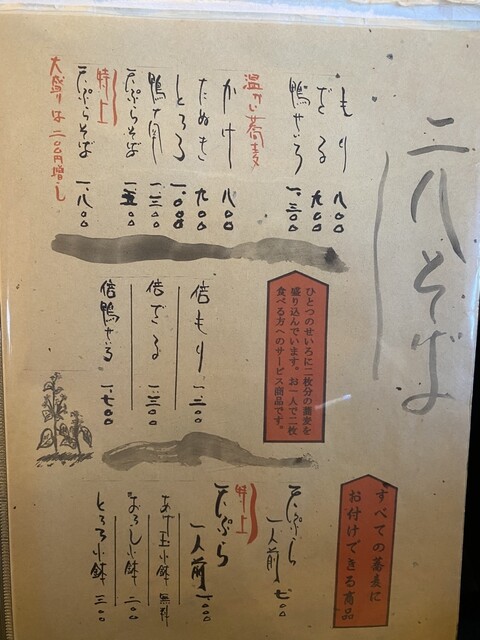 二八そば
もり 八〇〇
ざる 九〇〇
鴨せいろ 一、三〇〇
温かい蕎麦
かけ 八〇〇
たぬき 九〇〇
とろろ 一、〇〇〇
鴨南 一、三〇〇
天ぷらそば 一、五〇〇
特上
天ぷらそば 一、八〇〇
大盛りは二〇〇円増し
ひとつのせいろに二枚分の蕎麦を
盛り込んでいます。お一人で二枚
食べる方へのサービス商品です。
倍もり 一、二〇〇
倍ざる 一、三〇〇
倍鴨せいろ 一、七〇〇
すべての蕎麦に
お付けできる商品
天ぷら
一人前 七〇〇
特上
天ぷら
一人前 一、〇〇〇
あげ玉小鉢 無料
おろし小鉢 二〇〇
とろろ小鉢 三〇〇